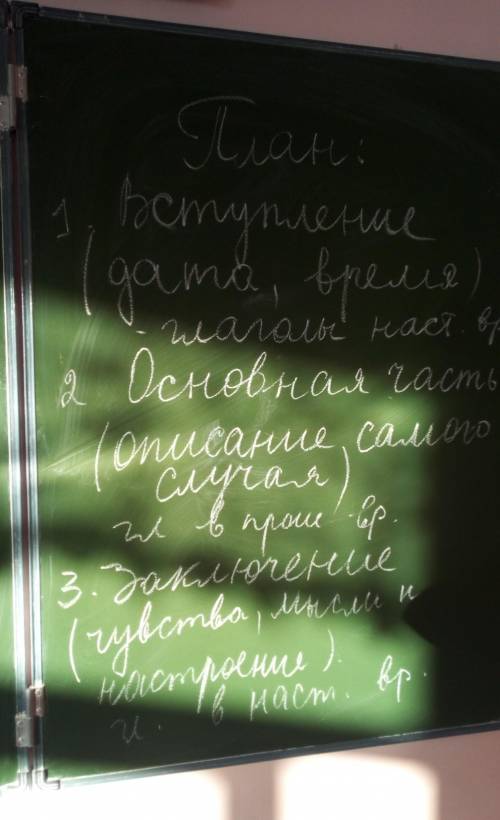 План:
1. Вступление
(дата, время)
- глаголы наст. вр
2 Основная часть
(описание самого
случая)
гл в прош. вр.
3. Заключение
(чувства, мысли и
настроение).
в наст. вр.